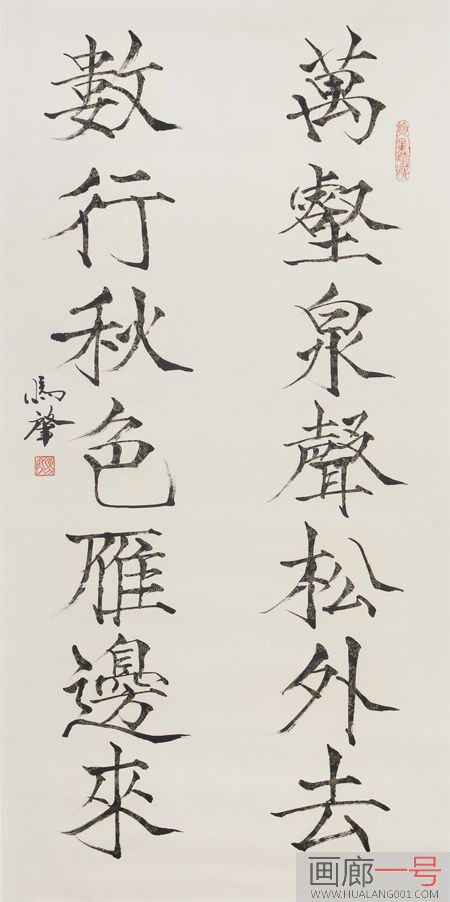 萬壑泉聲松外去
數行秋色雁邊來
画廊一号
WWW.HUALANG001.COM